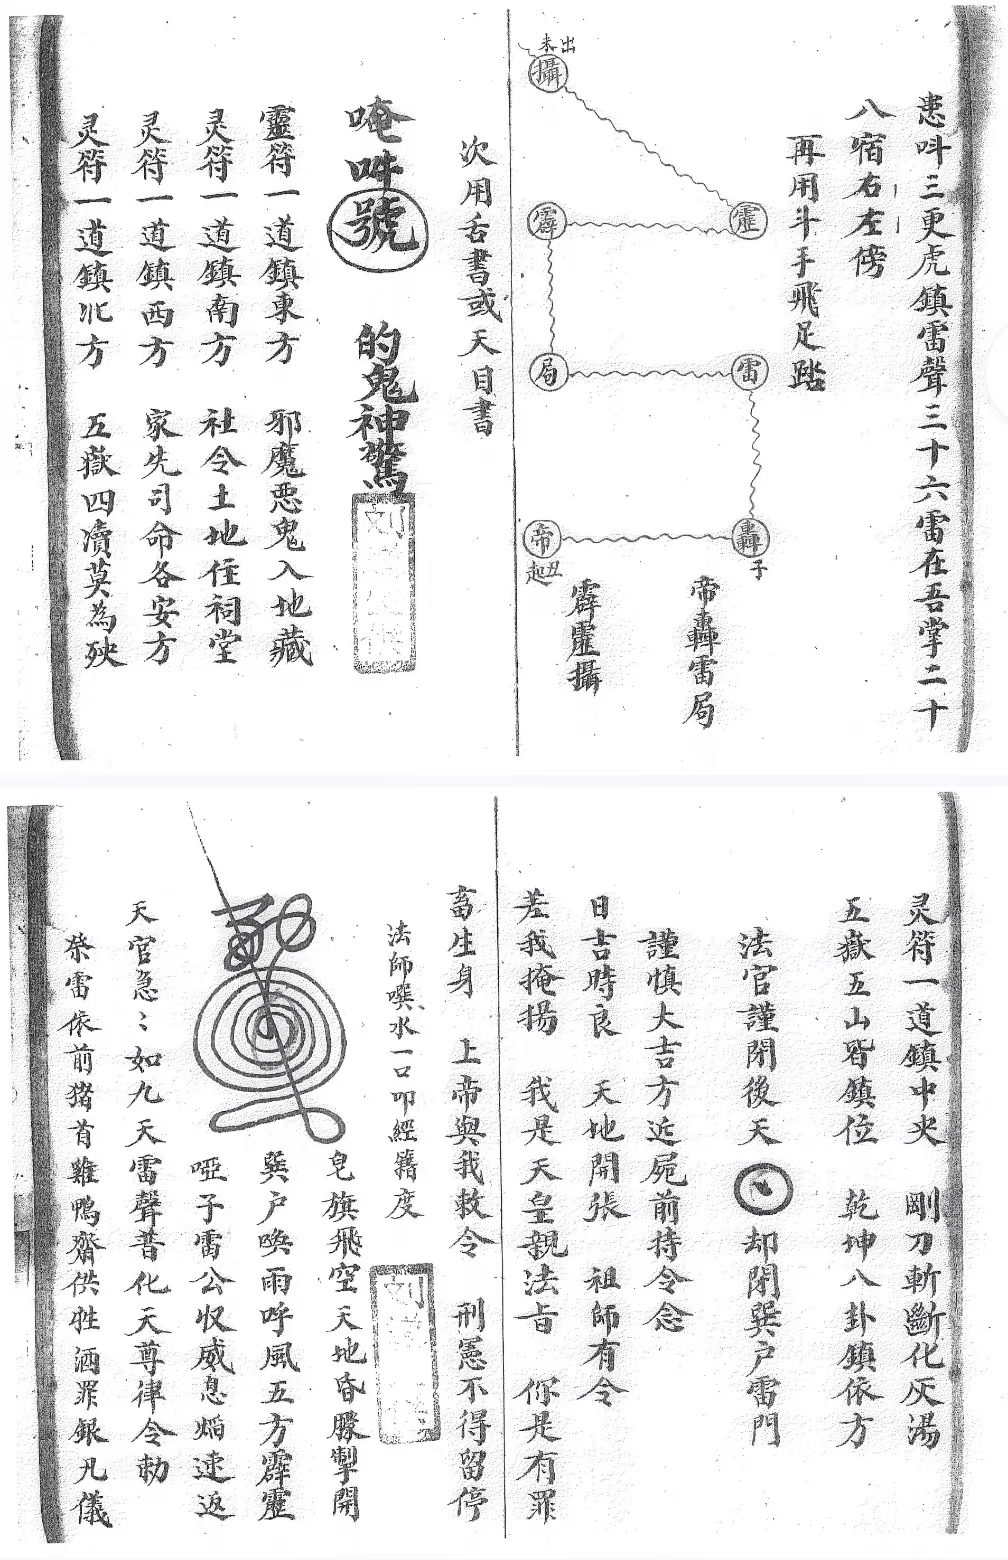 患呌三更虎鎮雷聲三十六雷在吾掌二十
八宿右左傍
再用斗手飛足踏
未出
攝
霹
靂
局
雷
帝
轟
丑起
子
帝轟雷局
霹靂攝
次用舌書或天目書
唵吽號 的鬼神驚
靈符一道鎮東方 邪魔惡鬼入地藏
灵符一道鎮南方 社令土地住祠堂
灵符一道鎮西方 家先司命各安方
灵符一道鎮北方 五嶽四瀆莫為殃
灵符一道鎮中央 剛刀斬斷化灰湯
五嶽五山皆鎮位 乾坤八卦鎮依方
法官謹閉後天 却閉巽户雷門
謹慎大吉方近屍前持令念
日吉時良 天地開張 祖師有令
差我掩揚 我是天皇親法旨 你是有罪
畜生身 上帝與我救令 刑憲不得留停
法師噀水一口叩經籍度
皂旗飛空天地昏朦掣開
巽户喚雨呼風五方霹靂
啞子雷公收威息焰速返
天官急〻如九天雷聲普化天尊律令勅
祭雷依前猪首雞鴨齋供牲酒罪銀凡儀